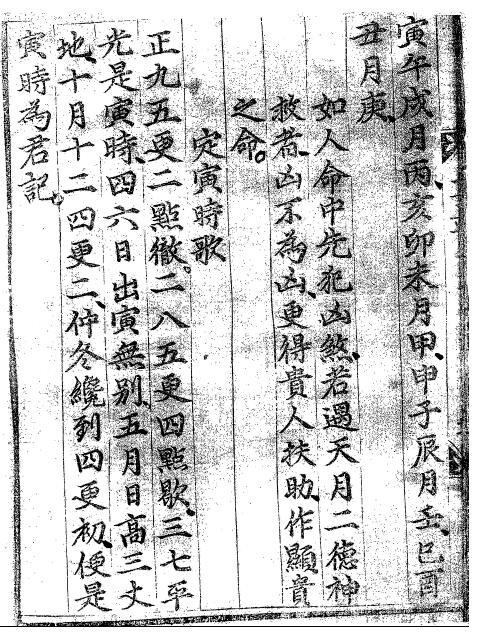 寅午戌月丙、亥卯未月甲、申子辰月壬、巳酉
丑月庚、
如人命中先犯凶煞、若遇天月二德神
救者、凶不為凶、更得貴人扶助、作顯貴
之命。
定寅時歌
正九五更二點徹、二八五更四點歇、三七平
光是寅時、四六日出寅無別、五月日高三丈
地、十月十二四更二、仲冬纔到四更初、便是
寅時為君記。